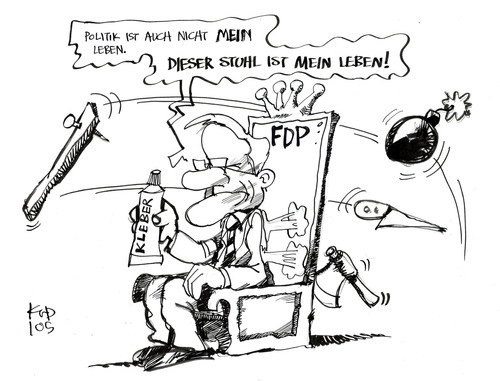 POLITIK IST AUCH NICHT MEIN
LEBEN.
DIESER STUHL IST MEIN LEBEN!
FDP
KLEBER
/05